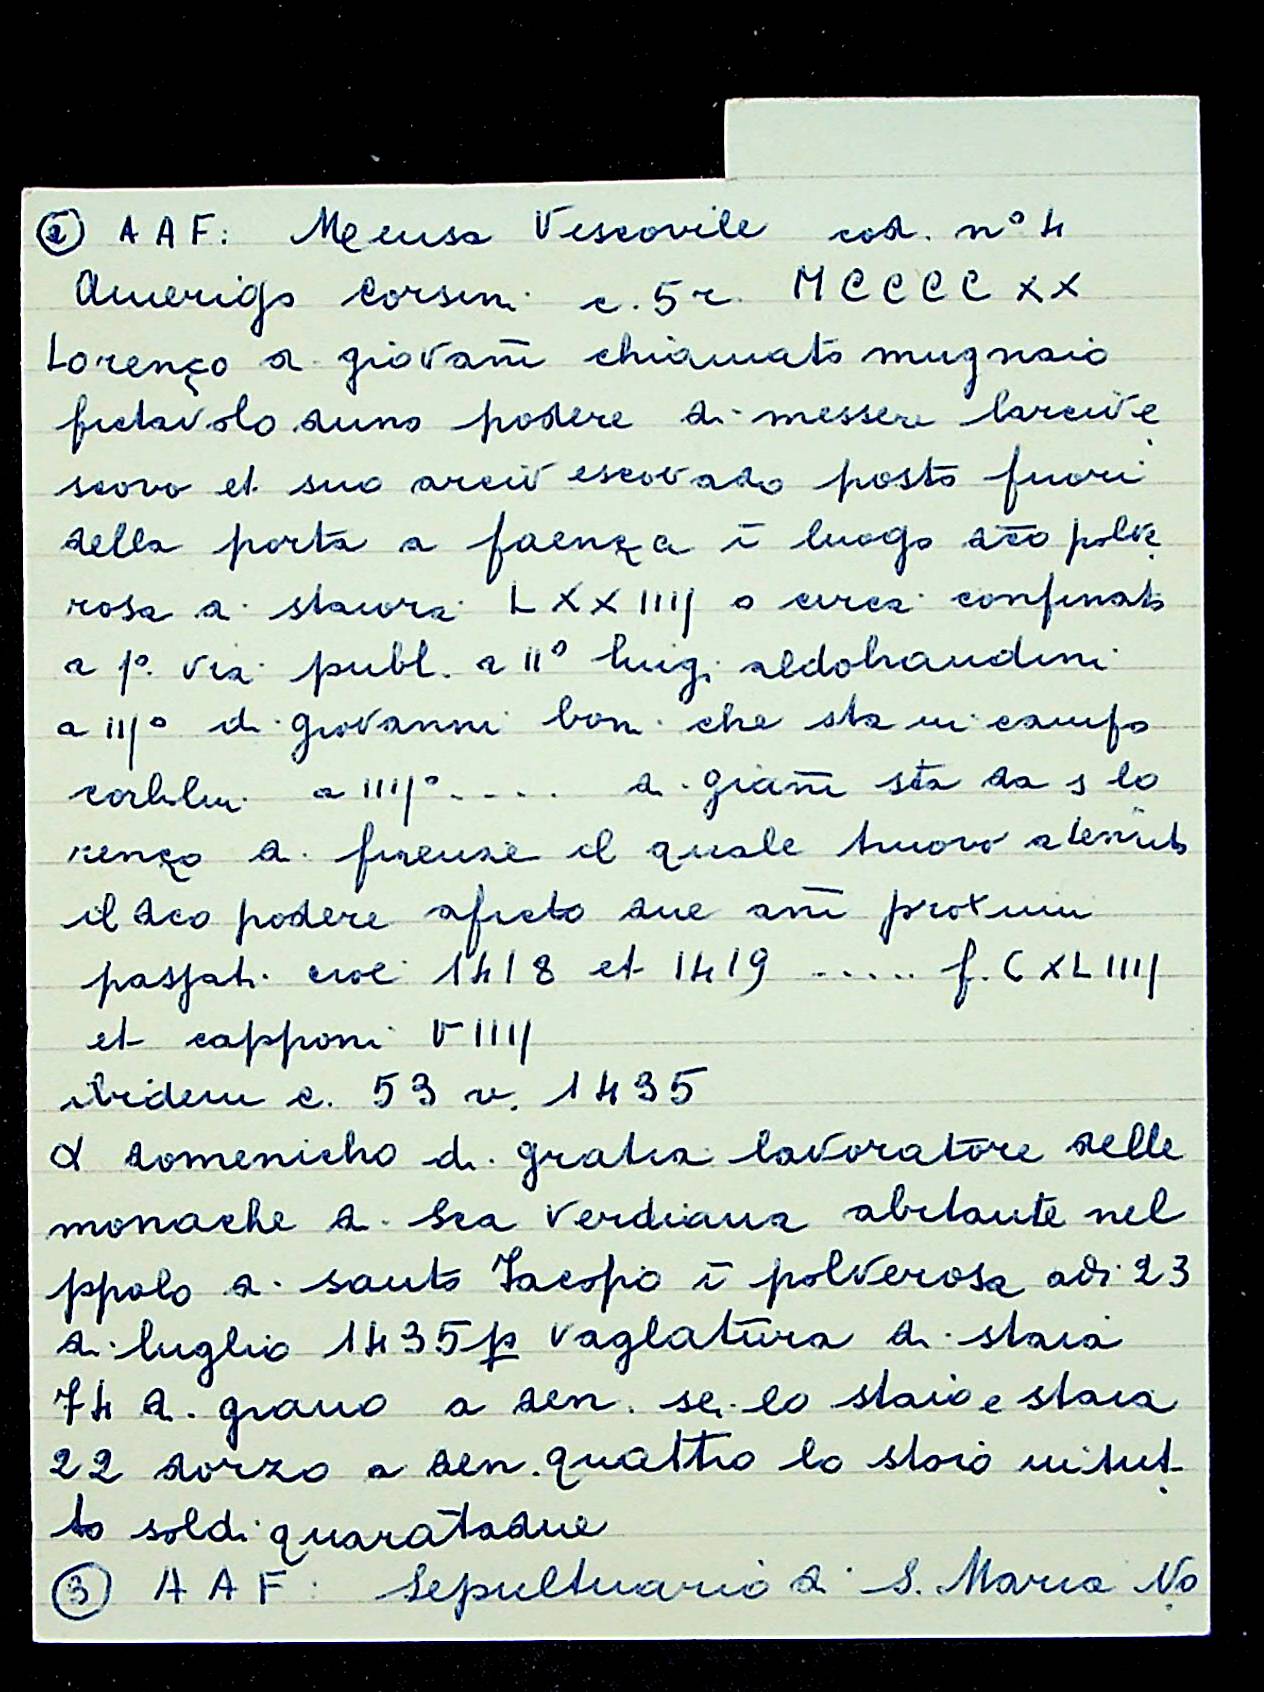 ② A A F: Mensa Vescovile cod. n° 4
Amerigo Corsini c. 5 r. MCCCCXX
Lorenço di giovañi chiamato mugnaio
fictavolo duno podere di messere larcive
scovo et suo arcivescovado posto fuori
della porta a faença ī luogo dc̄o polve
rosa di staiora LXXIIIJ o circa confinato
a p°. via publ. a II° luigi aldobrandini
a IIJ° di giovanni boni che sta in campo
corbolini a IIIJ°..... di giañi sta da s lo
renço di firenze il quale truovo a tenuto
il dco podere aficto due añi proximi
passati cioè 1418 et 1419 ..... f. CXLIIIJ
et capponi VIIIJ
ibidem c. 53 v. 1435
A domenicho di gratia lavoratōre delle
monache di Sca Verdiana abitante nel
ppolo di santo Jacopo ī polverosa adi 23
di luglio 1435 p vaglatūra di staia
74 di grano a den. sei lo staio e staia
22 dorzo a den. quattro lo staio intut
to soldi quarātadue
③ A A F: Sepultuario di S. Maria No